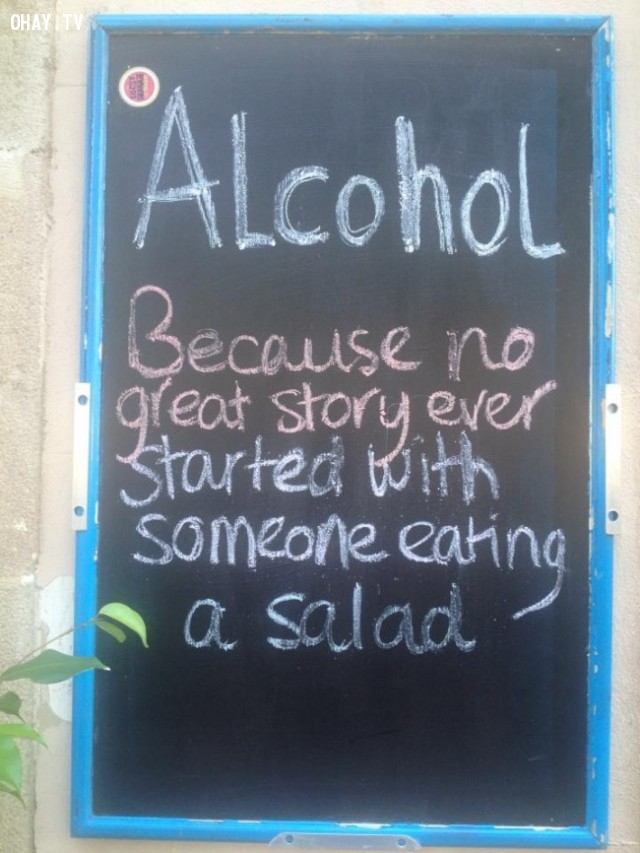 OHAY.TV
ALcohoL
Because no
great story ever
started with
someone eating
a salad